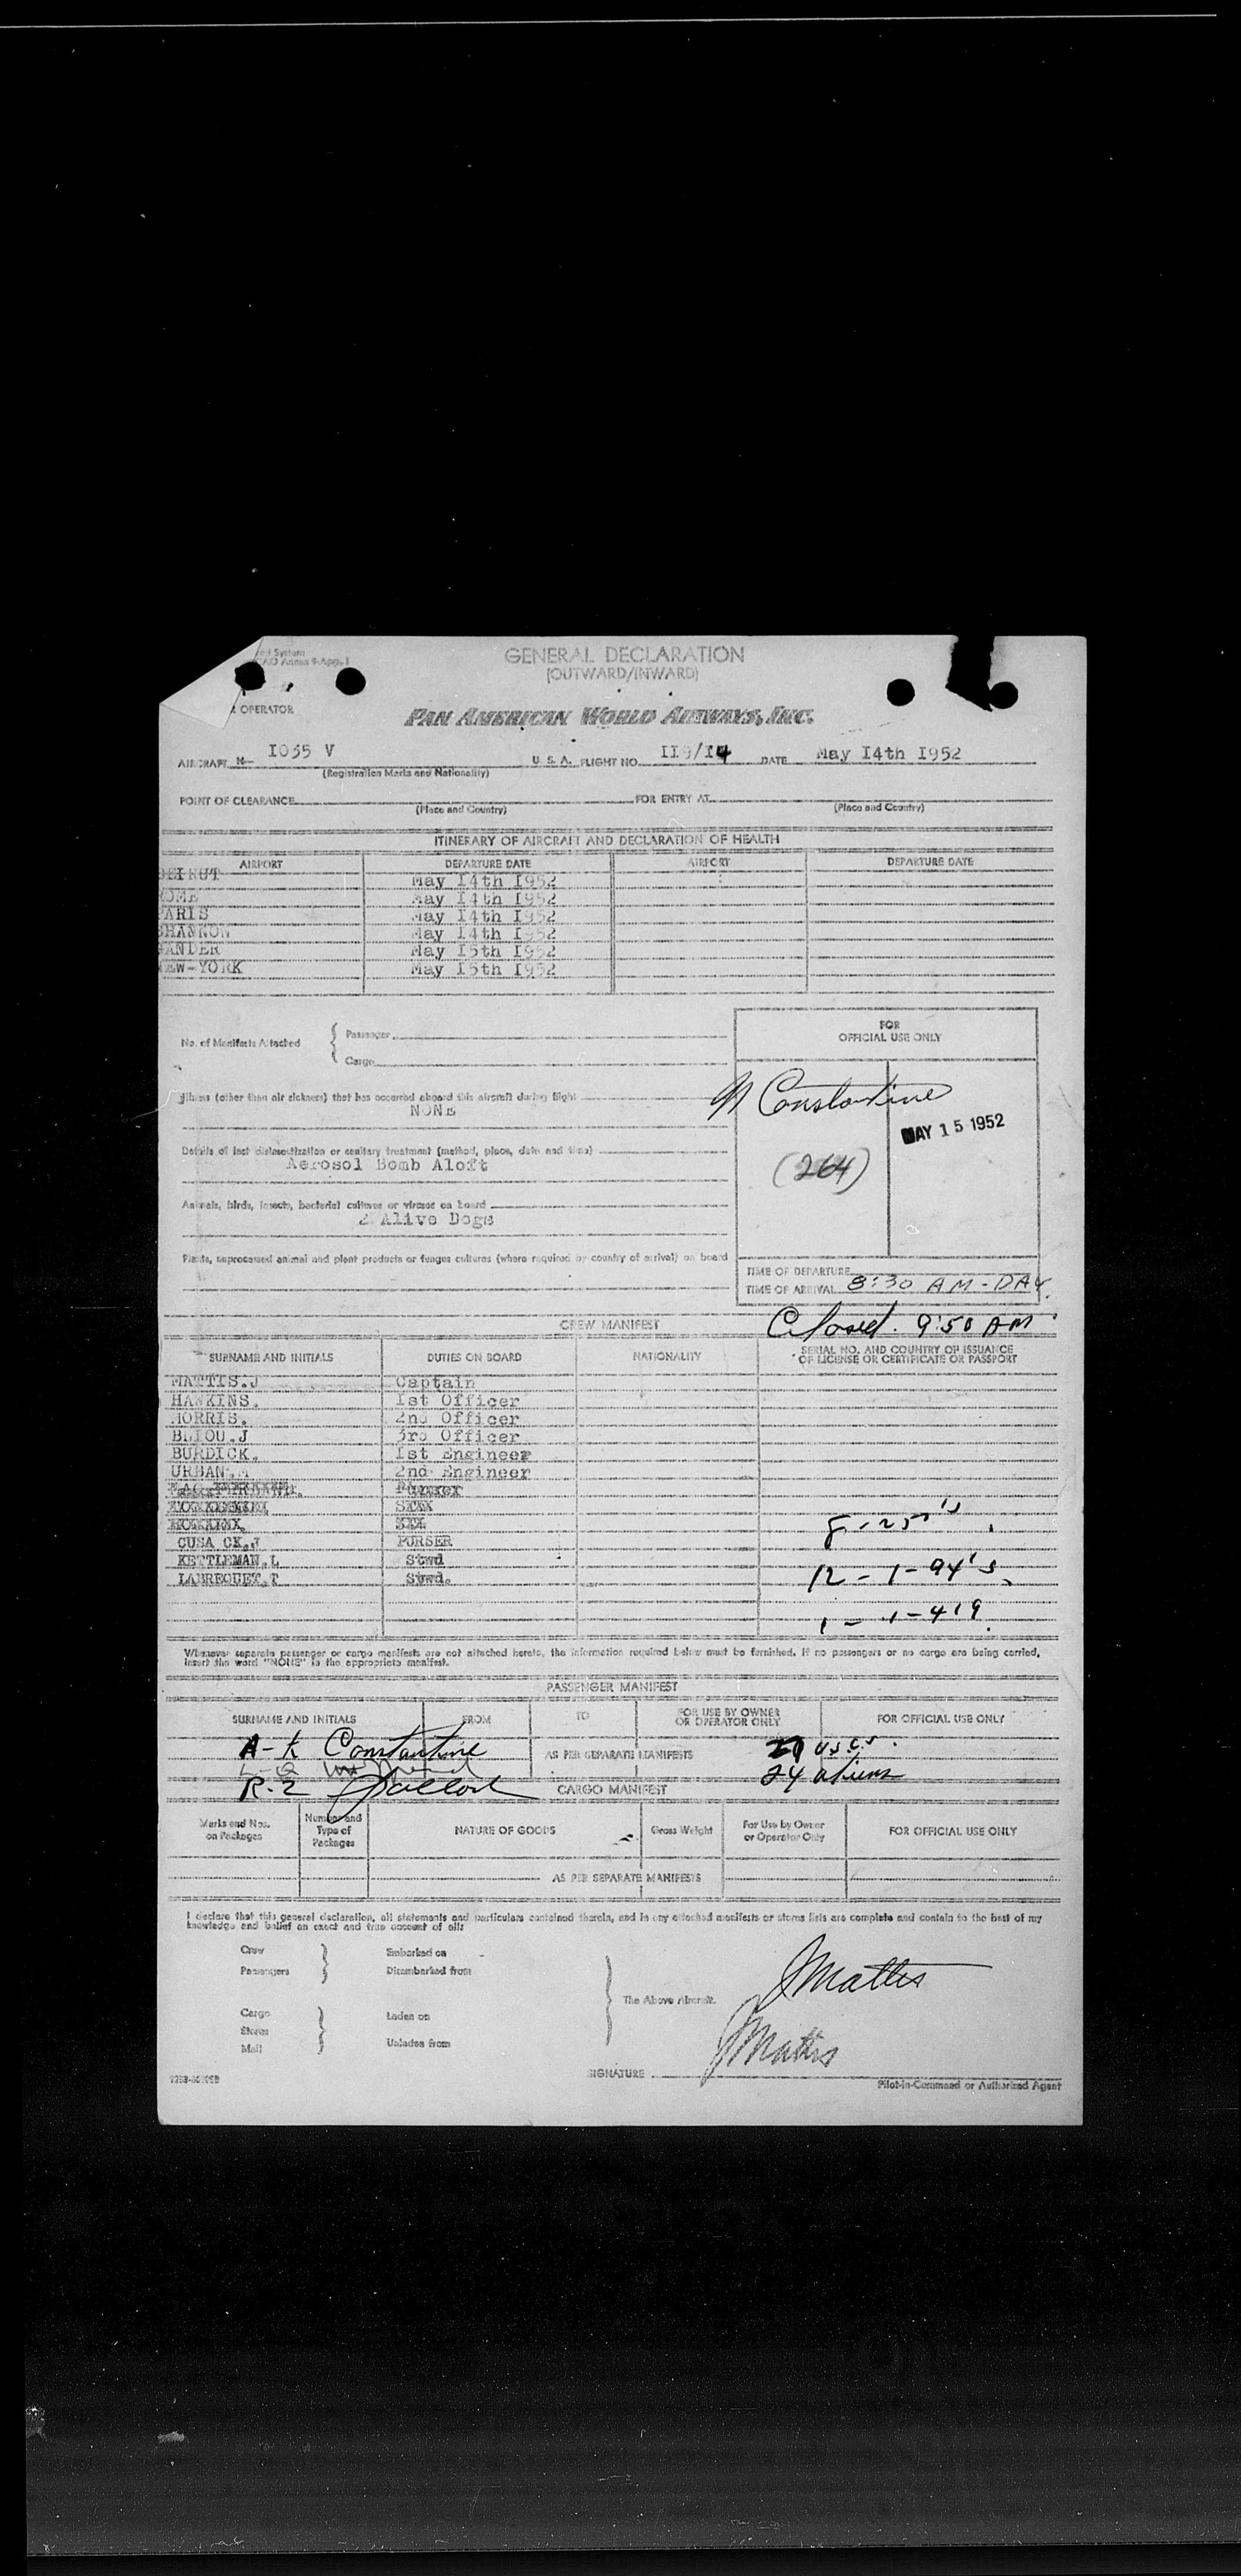 ed System
CAO Annex 9-App. I
GENERAL DECLARATION
(OUTWARD/INWARD)
OPERATOR
PAN AMERICAN WORLD AIRWAYS, INC.
AIRCRAFT N- I035 V U. S. A. FLIGHT NO. II9/I4 DATE May I4th I952
(Registration Marks and Nationality)
POINT OF CLEARANCE FOR ENTRY AT
(Place and Country) (Place and Country)
ITINERARY OF AIRCRAFT AND DECLARATION OF HEALTH
AIRPORT DEPARTURE DATE AIRPORT DEPARTURE DATE
BEIRUT May I4th I952
ROME May I4th I952
PARIS May I4th I952
SHANNON May I4th I952
GANDER May I5th I952
NEW-YORK May I5th I952
FOR
OFFICIAL USE ONLY
No. of Manifests Attached { Passenger
Cargo
N Constantine
MAY 15 1952
(264)
Illness (other than air sickness) that has occurred aboard this aircraft during flight
NONE
Details of last disinsectization or sanitary treatment (method, place, date and time)
Aerosol Bomb Aloft
Animals, birds, insects, bacterial cultures or viruses on board
2 Alive Dogs
Plants, unprocessed animal and plant products or fungus cultures (where required by country of arrival) on board
TIME OF DEPARTURE
TIME OF ARRIVAL 8:30 AM - DAY.
Closed. 9:50 AM
CREW MANIFEST
SURNAME AND INITIALS DUTIES ON BOARD NATIONALITY SERIAL NO. AND COUNTRY OF ISSUANCE OF LICENSE OR CERTIFICATE OR PASSPORT
MATTIS.J Captain
HAWKINS. Ist Officer
MORRIS. 2nd Officer
BLIOU.J 3rd Officer
BURDICK. Ist Engineer
URBAN. 2nd Engineer
Purser
8 - 25's
CUSACK.J PURSER
KETTLEMAN.L Stwd
LABREQUET.T Stwd.
12 - 1-94's
1 - 1-419
Whenever separate passenger or cargo manifests are not attached hereto, the information required below must be furnished. If no passengers or no cargo are being carried,
insert the word "NONE" in the appropriate manifest.
PASSENGER MANIFEST
SURNAME AND INITIALS FROM TO FOR USE BY OWNER OR OPERATOR ONLY FOR OFFICIAL USE ONLY
A-K Constantine AS PER SEPARATE MANIFESTS USCS.
L-Q
R-Z 24 aliens
CARGO MANIFEST
Marks and Nos. on Packages Number and Type of Packages NATURE OF GOODS Gross Weight For Use by Owner or Operator Only FOR OFFICIAL USE ONLY
AS PER SEPARATE MANIFESTS
I declare that this general declaration, all statements and particulars contained therein, and in any attached manifests or stores lists are complete and contain to the best of my
knowledge and belief an exact and true account of all:
Crew Embarked on
Passengers Disembarked from
The Above Aircraft.
JMattis
Cargo Laden on
Stores
Mail Unladen from
JMattis
SIGNATURE
Pilot-in-Command or Authorized Agent